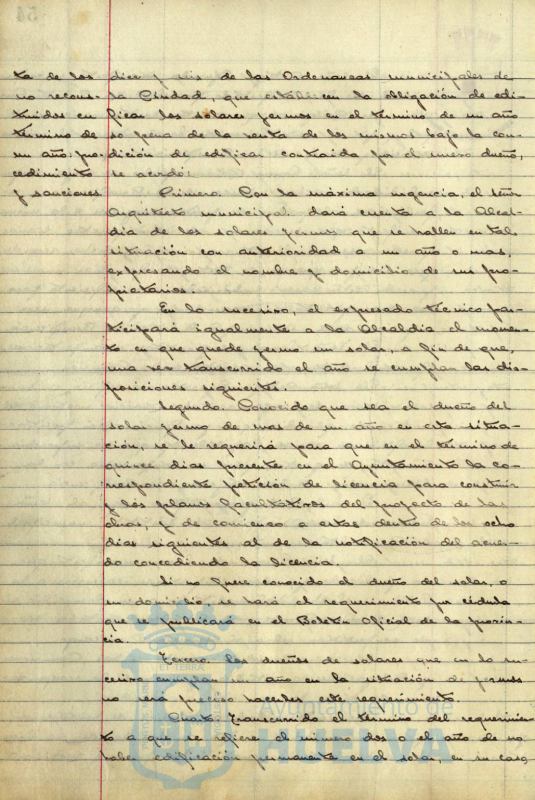 ta de los
no recons-
truidos en
término de
un año: pro-
cedimiento
y sanciones
diez y seis de las Ordenanzas municipales de
la Ciudad, que establecen la obligación de edi-
ficar los solares yermos en el término de un año
so pena de la venta de los mismos bajo la con-
dición de edificar contraida por el nuevo dueño,
se acordó:
Primero. Con la máxima urgencia, el señor
Arquitecto municipal dará cuenta a la Alcal-
dia de los solares yermos que se hallen en tal
situación con anterioridad a un año o mas,
expresando el nombre y domicilio de sus pro-
pietarios.
En lo sucesivo, el expresado técnico par-
ticipará igualmente a la Alcaldia el momen-
to en que quede yermo un solar, a fin de que,
una vez transcurrido el año se cumplan las dis-
posiciones siguientes.
Segundo. Conocido que sea el dueño del
solar yermo de mas de un año en esta situa-
ción, se le requerirá para que en el término de
quince dias presente en el Ayuntamiento la co-
rrespondiente petición de licencia para construir
y los planos facultativos del proyecto de las
obras; y de comienzo a estas dentro de los ocho
dias siguientes al de la notificación del acuer-
do concediendo la licencia.
Si no fuere conocido el dueño del solar, o
su domicilio, se hará el requerimiento por cédula
que se publicará en el Boletín Oficial de la provin-
cia.
Tercero. Los dueños de solares que en lo su-
cesivo cumplan un año en la situación de yermos
no será preciso hacerles este requerimiento.
Cuarto. Transcurrido el término del requerimien-
to a que se refiere el número dos o el año de no
haber edificación permanente en el solar, en su caso,
Ayuntamiento de
HUELVA